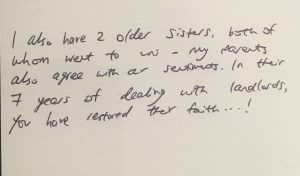 I also have 2 older sisters, both of
whom went to uni - my parents
also agree with our sentiments. In their
7 years of dealing with landlords,
you have restored their faith...!